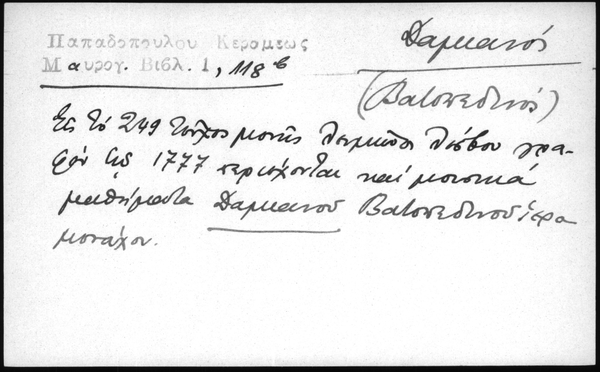 Παπαδοπουλου Κερομεως
Μαυρογ. Βιβλ. 1, 118β
Δαμιανός
(Βατοπεδινός)
Εἰς τό 249 τεῦχος μονῆς Λειμῶνος Λέσβου γρα-
φέν τῷ 1777 περιέχονται καί μουσικά
μαθήματα Δαμιανοῦ Βατοπεδινοῦ ἱερο
μονάχου.